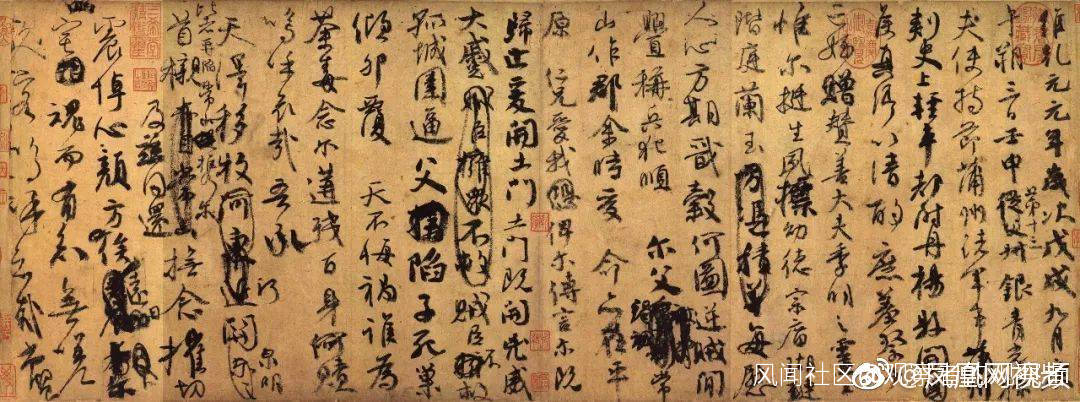 維乾元元年歲次戊戌九月庚
午朔三日壬申第十三從父銀青光祿
夫使持節蒲州諸軍事蒲州
刺史上輕車都尉丹楊縣開國
侯真卿以清酌庶羞祭于
亡姪贈贊善大夫季明之靈
惟爾挺生夙標幼德宗廟瑚璉
階庭蘭玉方憑積善每慰
人心方期戩穀何圖逆賊間
釁稱兵犯順 爾父竭誠常
山作郡余時受命亦在平
原仁兄愛我恐俾爾傳言爾既
歸止爰開土門土門既開兇威
大蹙賊臣擁眾不救賊臣不救
孤城圍逼父陷子死巢
傾卵覆天不悔禍誰為
荼毒念爾遘殘百身何贖
嗚乎哀哉吾承
天澤移牧河東近河關泉明
比者再陷常山攜爾
首櫬及茲同還撫念摧切
震悼心顏方俟遠日卜爾
宅魂而有知無嗟
久客嗚呼哀哉尚饗
风闻社区
@凤凰网视频